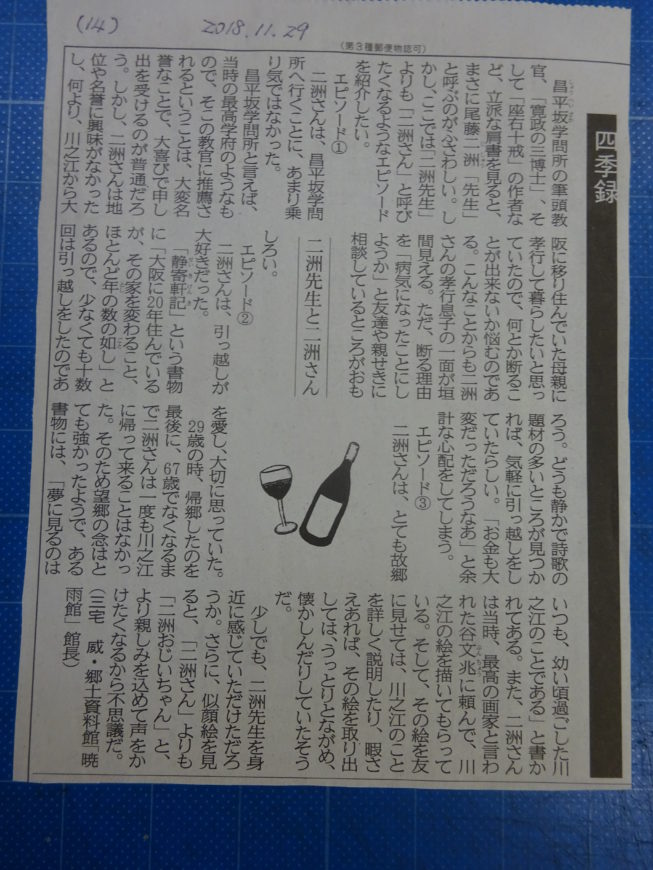 (14)
2018.11.29
(第3種郵便物認可)
四季録
昌平坂学問所の筆頭教
官、「寛政の三博士」、そ
して「座右十戒」の作者な
ど、立派な肩書を見ると、
まさに尾藤二洲「先生」
と呼ぶのがふさわしい。し
かし、ここでは「二洲先生」
よりも「二洲さん」と呼び
たくなるようなエピソード
を紹介したい。
エピソード①
二洲さんは、昌平坂学問
所へ行くことに、あまり乗
り気ではなかった。
昌平坂学問所と言えば、
当時の最高学府のようなも
ので、そこの教官に推薦さ
れるということは、大変名
誉なことで、大喜びで申し
出を受けるのが普通だろ
う。しかし、二洲さんは地
位や名誉に興味がなかった
し、何より、川之江から大
阪に移り住んでいた母親に
孝行して暮らしたいと思っ
ていたので、何とか断るこ
とが出来ないか悩むのであ
る。こんなことからも二洲
さんの孝行息子の一面が垣
間見える。ただ、断る理由
を「病気になったことにし
ようか」と友達や親せきに
相談しているところがおも
二洲先生と二洲さん
しろい。
エピソード②
二洲さんは、引っ越しが
大好きだった。
「静寄軒記」という書物
に「大阪に20年住んでいる
が、その家を変わること、
ほとんど年の数の如し」と
あるので、少なくても十数
回は引っ越しをしたのであ
ろう。どうも静かで詩歌の
題材の多いところが見つか
れば、気軽に引っ越しをし
ていたらしい。「お金も大
変だっただろうなあ」と余
計な心配をしてしまう。
エピソード③
二洲さんは、とても故郷
を愛し、大切に思っていた。
29歳の時、帰郷したのを
最後に、67歳でなくなるま
で二洲さんは一度も川之江
に帰って来ることはなかっ
た。そのため望郷の念はと
ても強かったようで、ある
書物には、「夢に見るのは
いつも、幼い頃過ごした川
之江のことである」と書か
れてある。また、二洲さん
は当時、最高の画家と言わ
れた谷文兆に頼んで、川
之江の絵を描いてもらって
いる。そして、その絵を友
に見せては、川之江のこと
を詳しく説明したり、暇さ
えあれば、その絵を取り出
しては、うっとりとながめ、
懐かしんだりしていたそう
だ。
少しでも、二洲先生を身
近に感じていただけただろ
うか。さらに、似顔絵を見
ると、「二洲さん」よりも
「二洲おじいちゃん」と、
より親しみを込めて声をか
けたくなるから不思議だ。
(三宅　威・郷土資料館「暁
雨館」館長)